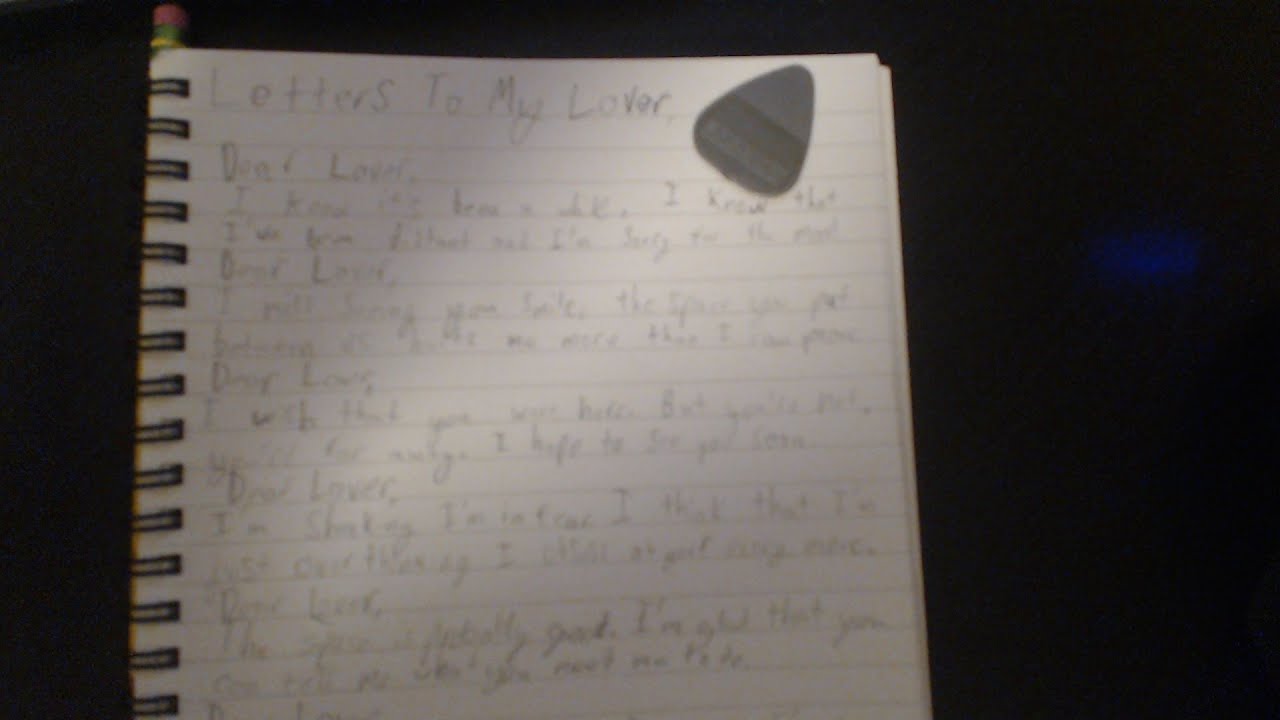 Letters To My Lover,
Dear Lover,
I know it's been a while. I know that
I've been distant and I'm sorry for the
Dear Lover,
I miss seeing your smile, the space you put
between us hurts me more than I can
Dear Lover,
I wish that you were here. But you're not,
you're far away. I hope to see you soon
Dear Lover,
I'm Shaking I'm in fear I think that I'm
just overthinking I every move.
Dear Lover,
The space is probally good. I'm glad that you
can tell me what you need me to be.
Dear Lover